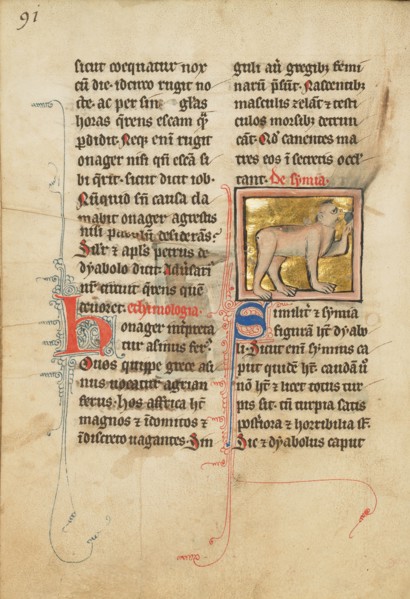 91
sicut coequatur nox
cũ die. idcirco rugit no
cte. ac per sin glas
horas q̃rens escam q̃
p̃didit. Neq; enĩ rugit
onager nisi qñ escã si
bi q̃rit. sicut dicit iob.
Nũquid sñ causa cla
mabit onager agrestis
nisi desiderãs?
Silr̃ ⁊ apl̃s petrus de
dyabolo dicit. Aduersari᾽
ur̃ circuit q̃rens quẽ
deuoret. ethimologia.
Honager interpreta
tur asinus fer᾽.
Onos quippe grece asi
nus uocatur agrian
ferus. hos affrica hr̃
magnos ⁊ ĩdomitos ⁊
ĩ deserto uagantes. Sin
guli aũ gregib; femi
narũ p̃sũt. Nascentib;
masculis zelãt ⁊ testi
culos morsib; detrun
cãt. ma
tres eos ĩ secretis occl̃
tant. De symia.
Similit᾽ ⁊ symia
figurã hr̃ dyabo
li. Sicut enĩ symius ca
put quidẽ hr̃. caudã ũ
nõ hr̃ ⁊ licet totus tur
pis sit. tñ turpia satis
post̃iora ⁊ horribilia st̃.
Sic ⁊ dyabolus caput